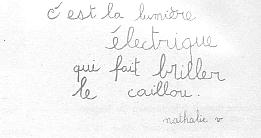 c'est la lumière
électrique
qui fait briller
le caillou.
nathalie v